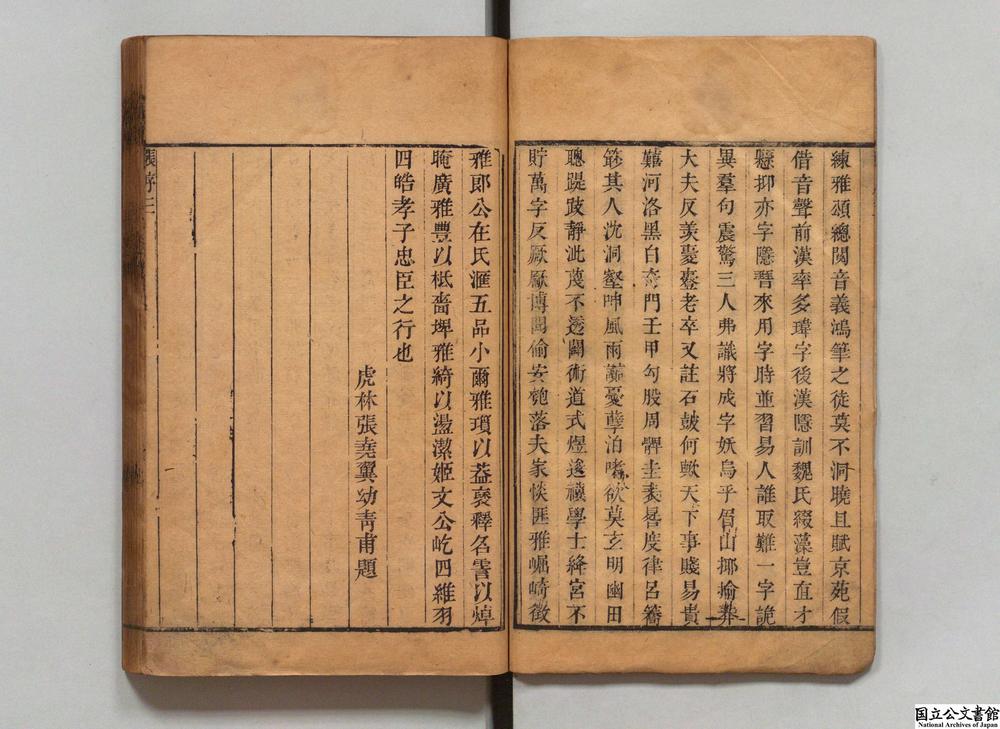 練雅頌總閱音義鴻筆之徒莫不洞曉且賦京苑假
借音聲前漢率多瑋字後漢隱訓魏氏綴藻豈直才
懸抑亦字隱晉來用字時並習易人誰取難一字詭
異羣句震驚三人弗識將成字妖烏乎眉山揶揄莽
大夫反美憂老卒又註石皷何歟天下事賤易貴
囏河洛黑白奇門壬甲勾股周髀圭表晷度律呂
其人沈洞壑呻風雨憂孽泊欲莫玄明幽田
聰踶跂靜泚蔑不透闢術道式煜遂學士絳宮不
貯萬字反厭厭博聞偷安匏落夫家惔匪雅崛崎徵
雅郞公在氏滙五品小爾雅瑣以益褒釋名以焯
晻廣雅豐以柢嗇埤雅綺以盪潔姬文公屹四維羽
四皓孝子忠臣之行也
虎林張堯翼幼靑甫題
張序三
国立公文書館
National Archives of Japan